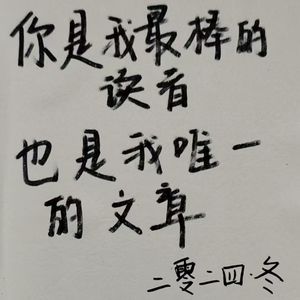 你是我最棒的
读者
也是我唯一
的文章
二零二四·冬